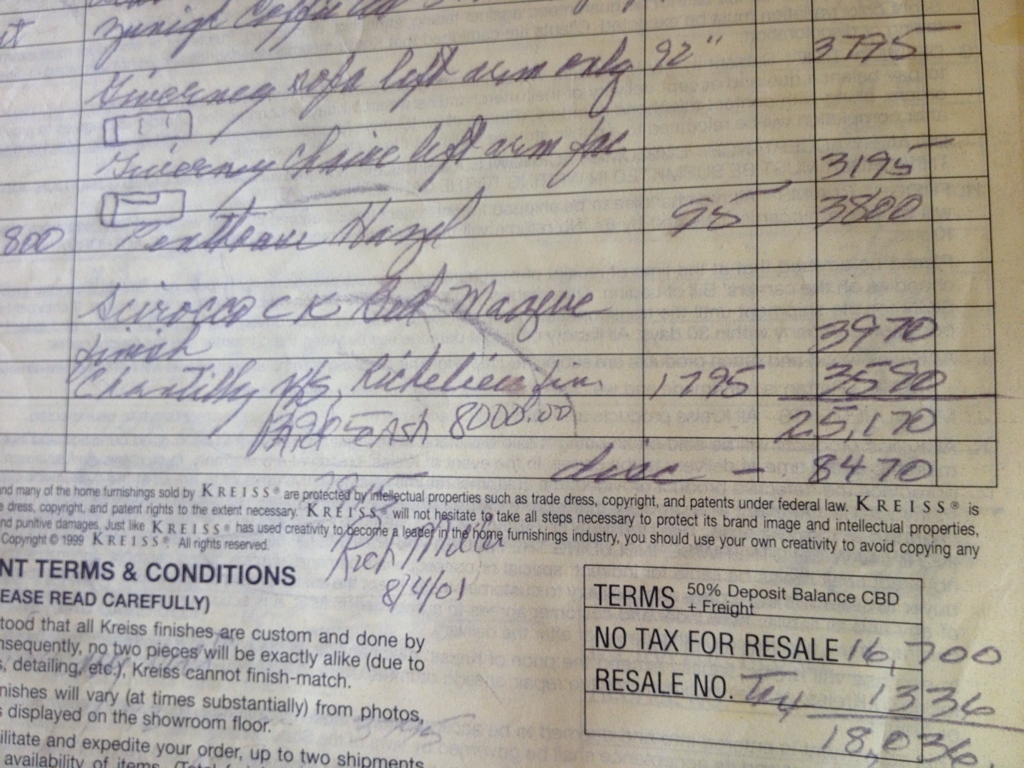 Giverney sofa left arm only 92" 3775
Giverny Chaise left arm fac 3195
800 Penthouse Hazel 95 3800
Scirocco CK Bed Maque
finish 3970
Chantilly N/S, Richelieu fin. 1795 3590
PAID CASH 8000.00 25,170
disc - 8470
nd many of the home furnishings sold by KREISS® are protected by intellectual properties such as trade dress, copyright, and patents under federal law. KREISS® is
dress, copyright, and patent rights to the extent necessary. KREISS® will not hesitate to take all steps necessary to protect its brand image and intellectual properties,
nd punitive damages. Just like KREISS® has used creativity to become a leader in the home furnishings industry, you should use your own creativity to avoid copying any
Copyright © 1999 KREISS® All rights reserved.
Rich Miller
8/4/01
NT TERMS & CONDITIONS
EASE READ CAREFULLY)
tood that all Kreiss finishes are custom and done by
nsequently, no two pieces will be exactly alike (due to
s, detailing, etc.), Kreiss cannot finish-match.
nishes will vary (at times substantially) from photos,
s displayed on the showroom floor.
ilitate and expedite your order, up to two shipments
availability of items. (Total
TERMS 50% Deposit Balance CBD
+ Freight
NO TAX FOR RESALE 16,700
RESALE NO. Tax 1336
18,036.